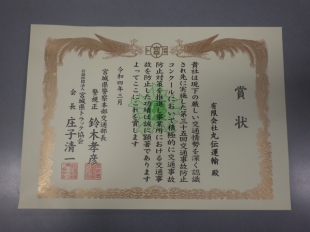 賞状
有限会社丸伝運輸 殿
貴社は現下の厳しい交通情勢を深く認識
され先に実施した第三十五回交通事故防止
コンクールにおいて積極的に交通事故
防止対策を推進し事業所における交通事
故を防止した功績は誠に顕著であります
よってここにこれを賞します
令和四年二月
宮城県警察本部交通部長
警視正 鈴木孝彦
公益社団法人宮城県トラック協会
会長 庄子清一